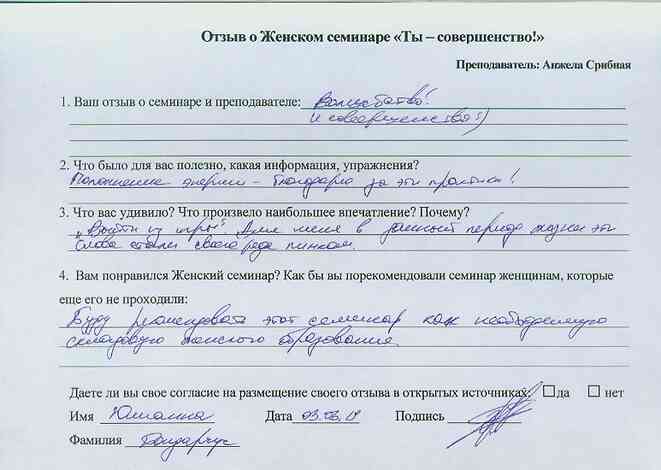 Отзыв о Женском семинаре «Ты – совершенство!»
Преподаватель: Анжела Срибная
1. Ваш отзыв о семинаре и преподавателе: Волшебство!
и совершенство :)
2. Что было для вас полезно, какая информация, упражнения?
Наполнение энергии – благодарю за эти практики!
3. Что вас удивило? Что произвело наибольшее впечатление? Почему?
„Выйти из игры". Для меня в данный период жизни эти
слова стали своего рода пинком.
4. Вам понравился Женский семинар? Как бы вы порекомендовали семинар женщинам, которые
еще его не проходили:
Буду рекомендовать этот семинар как необходимую
женского образования.
Даете ли вы свое согласие на размещение своего отзыва в открытых источниках: да нет
Имя Юлианна Дата 03.06.19 Подпись
Фамилия Бондарчук